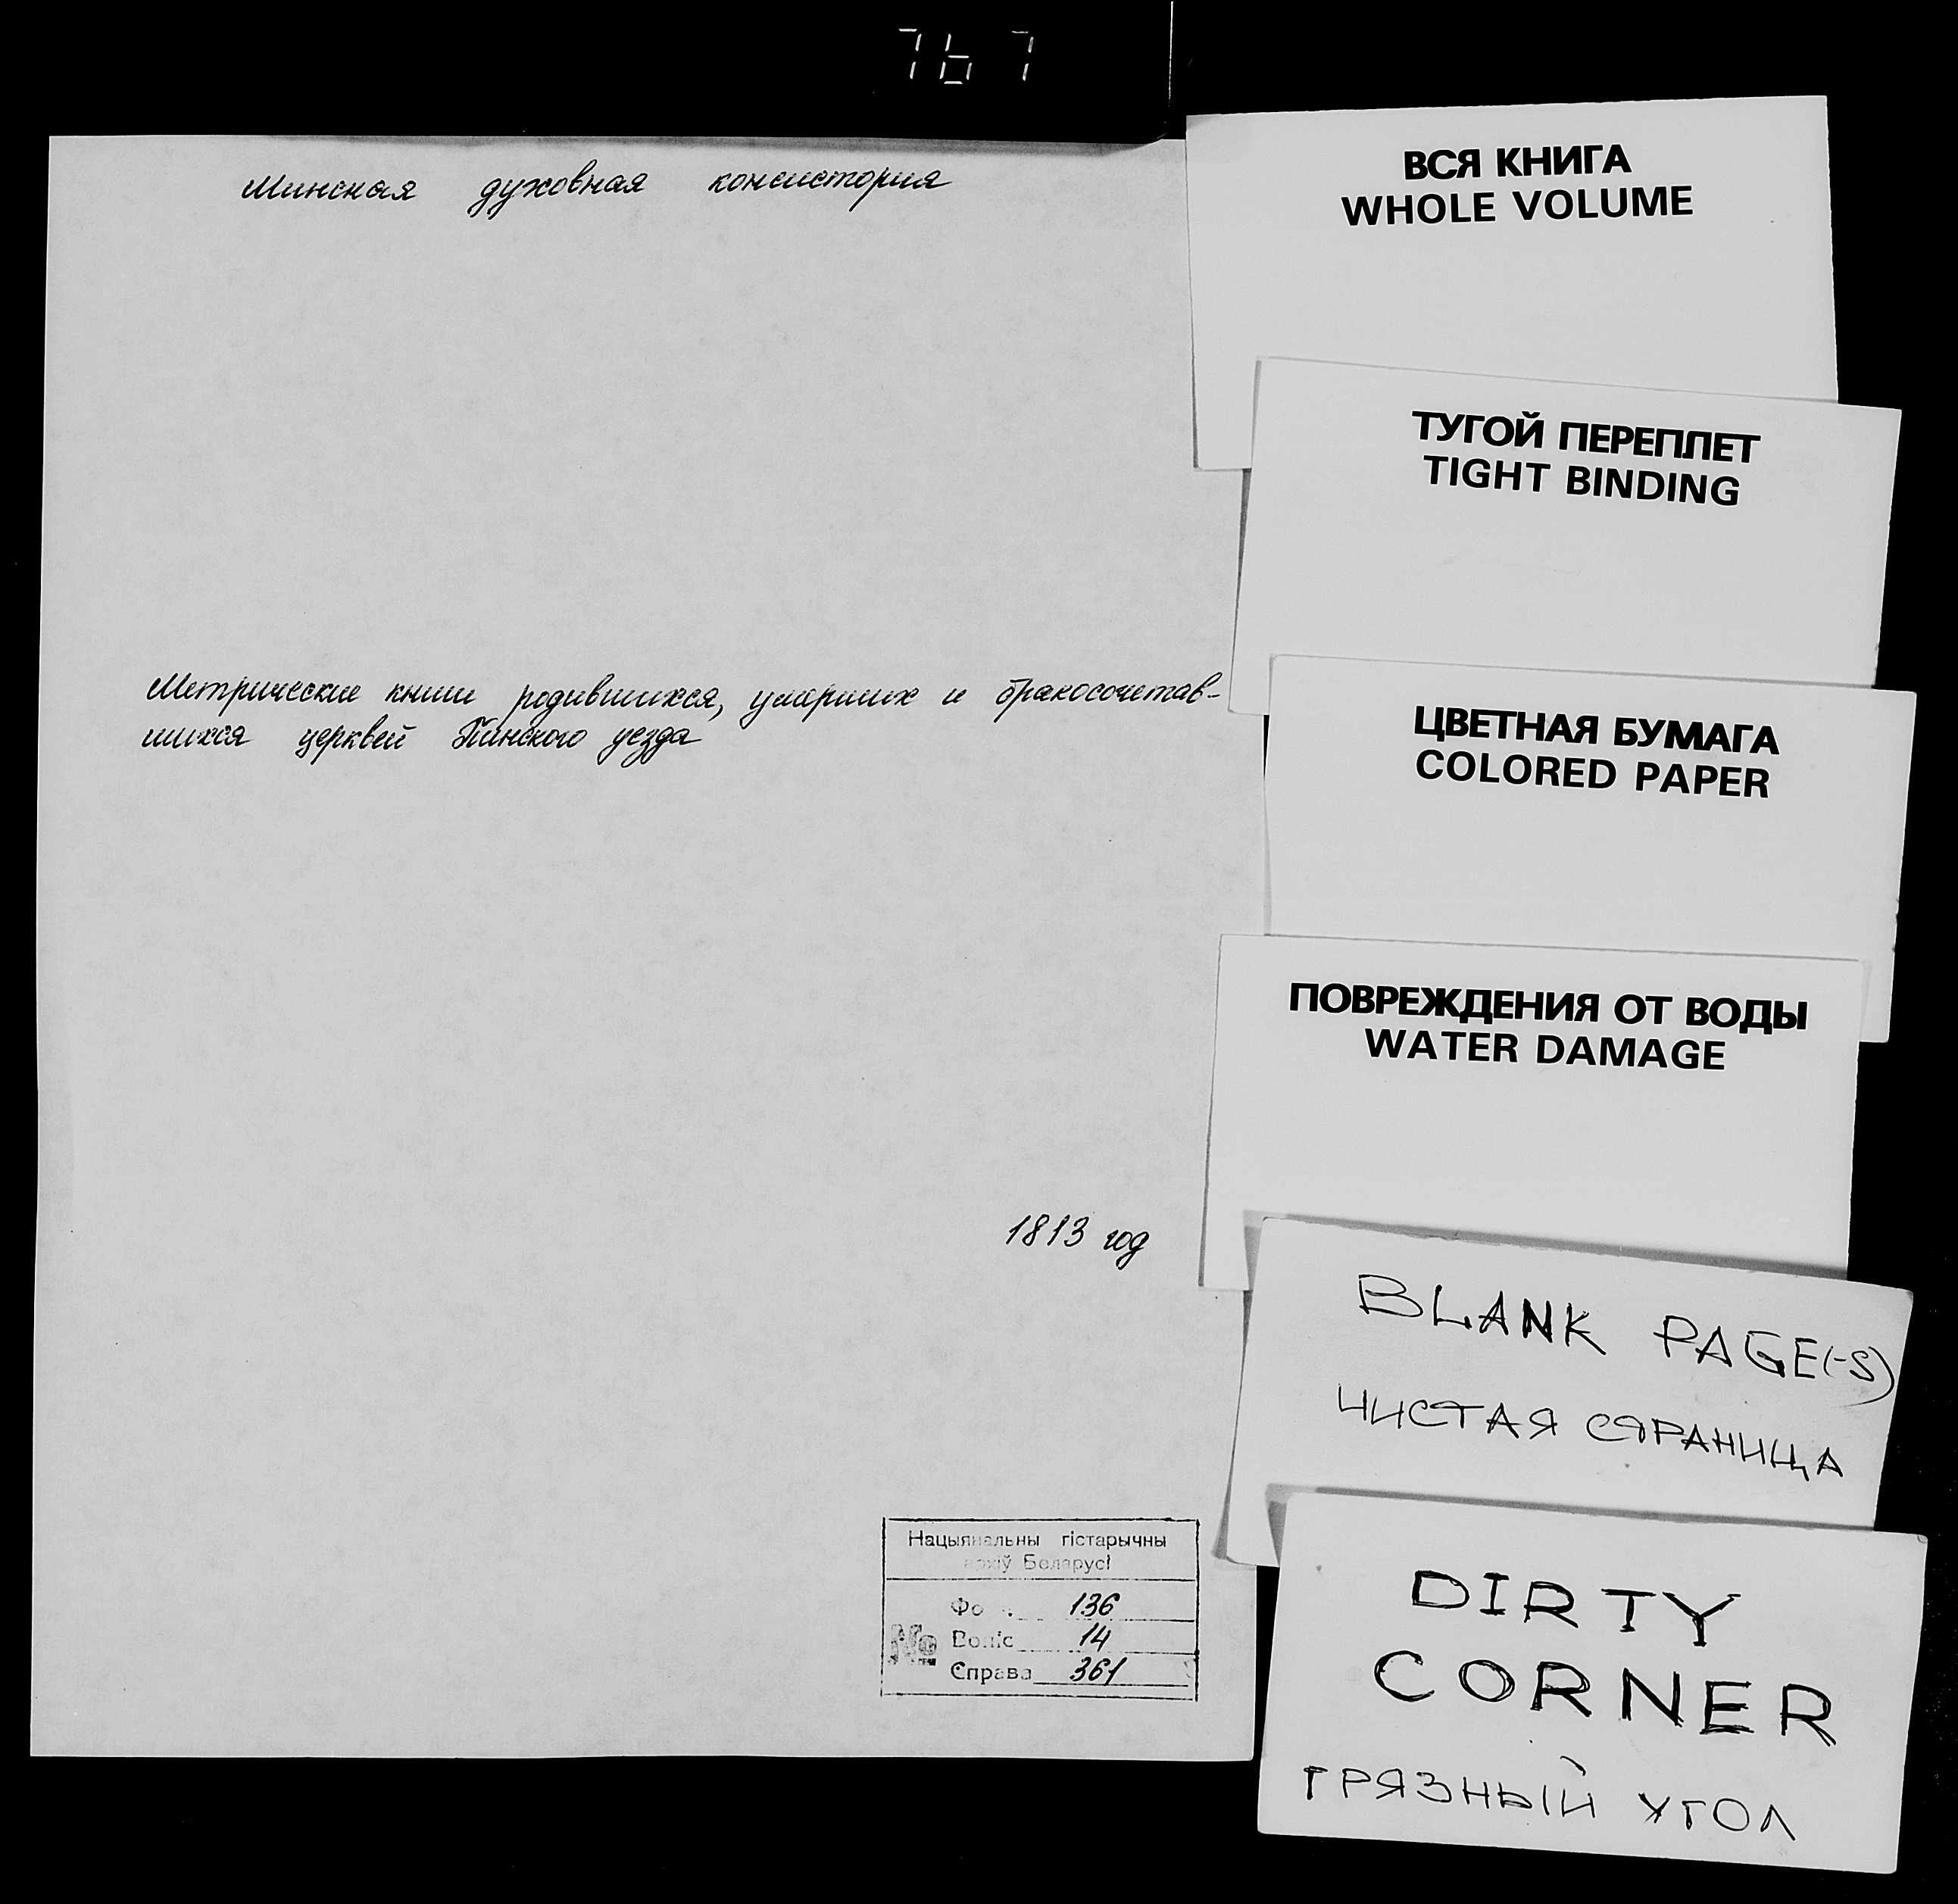 767
Минская духовная консистория
Метрические книги родившихся, умерших и бракосочетав-
шихся церквей Пинского уезда
1813 год
Нацыянальны гістарычны
архіў Беларусі
Фонд 136
Вопіс 14
№ Справа 361
ВСЯ КНИГА
WHOLE VOLUME
ТУГОЙ ПЕРЕПЛЕТ
TIGHT BINDING
ЦВЕТНАЯ БУМАГА
COLORED PAPER
ПОВРЕЖДЕНИЯ ОТ ВОДЫ
WATER DAMAGE
BLANK PAGE(-S)
ЧИСТАЯ СТРАНИЦА
DIRTY
CORNER
ГРЯЗНЫЙ УГОЛ